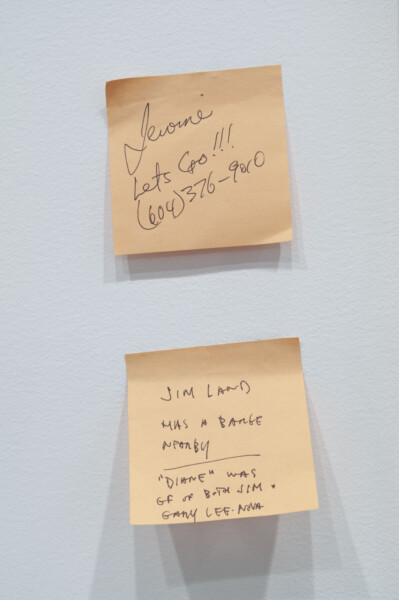 Jerome
Let's Go!!!
(604) 376-9010
JIM LAND
HAS A BARGE
NEARBY
"DIANE" WAS
GF OF BOTH JIM &
GARY LEE-NOVA